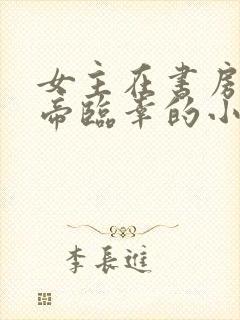 女主在书房
帝临幸的小
李長進